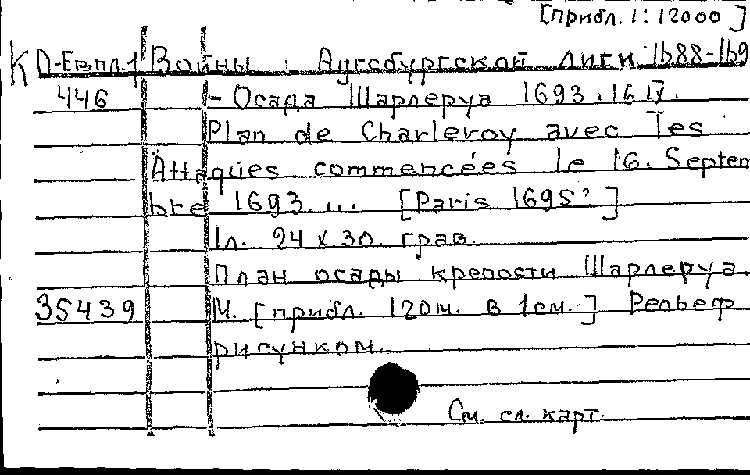 [прибл. 1:12000]
К П-Евпл.1 Войны: Аугсбургской лиги 1688-169
446 - Осада Шарлеруа 1693.16 IX.
Plan de Charleroy avec les
Attaques commencées le 16. Septem
bre 1693 ... [Paris 1695?]
1л. 24 х 30. грав.
План осады крепости Шарлеруа
35439 М. [прибл. 120м. в 1см.] Рельеф
рисунком.
См. сл. карт.